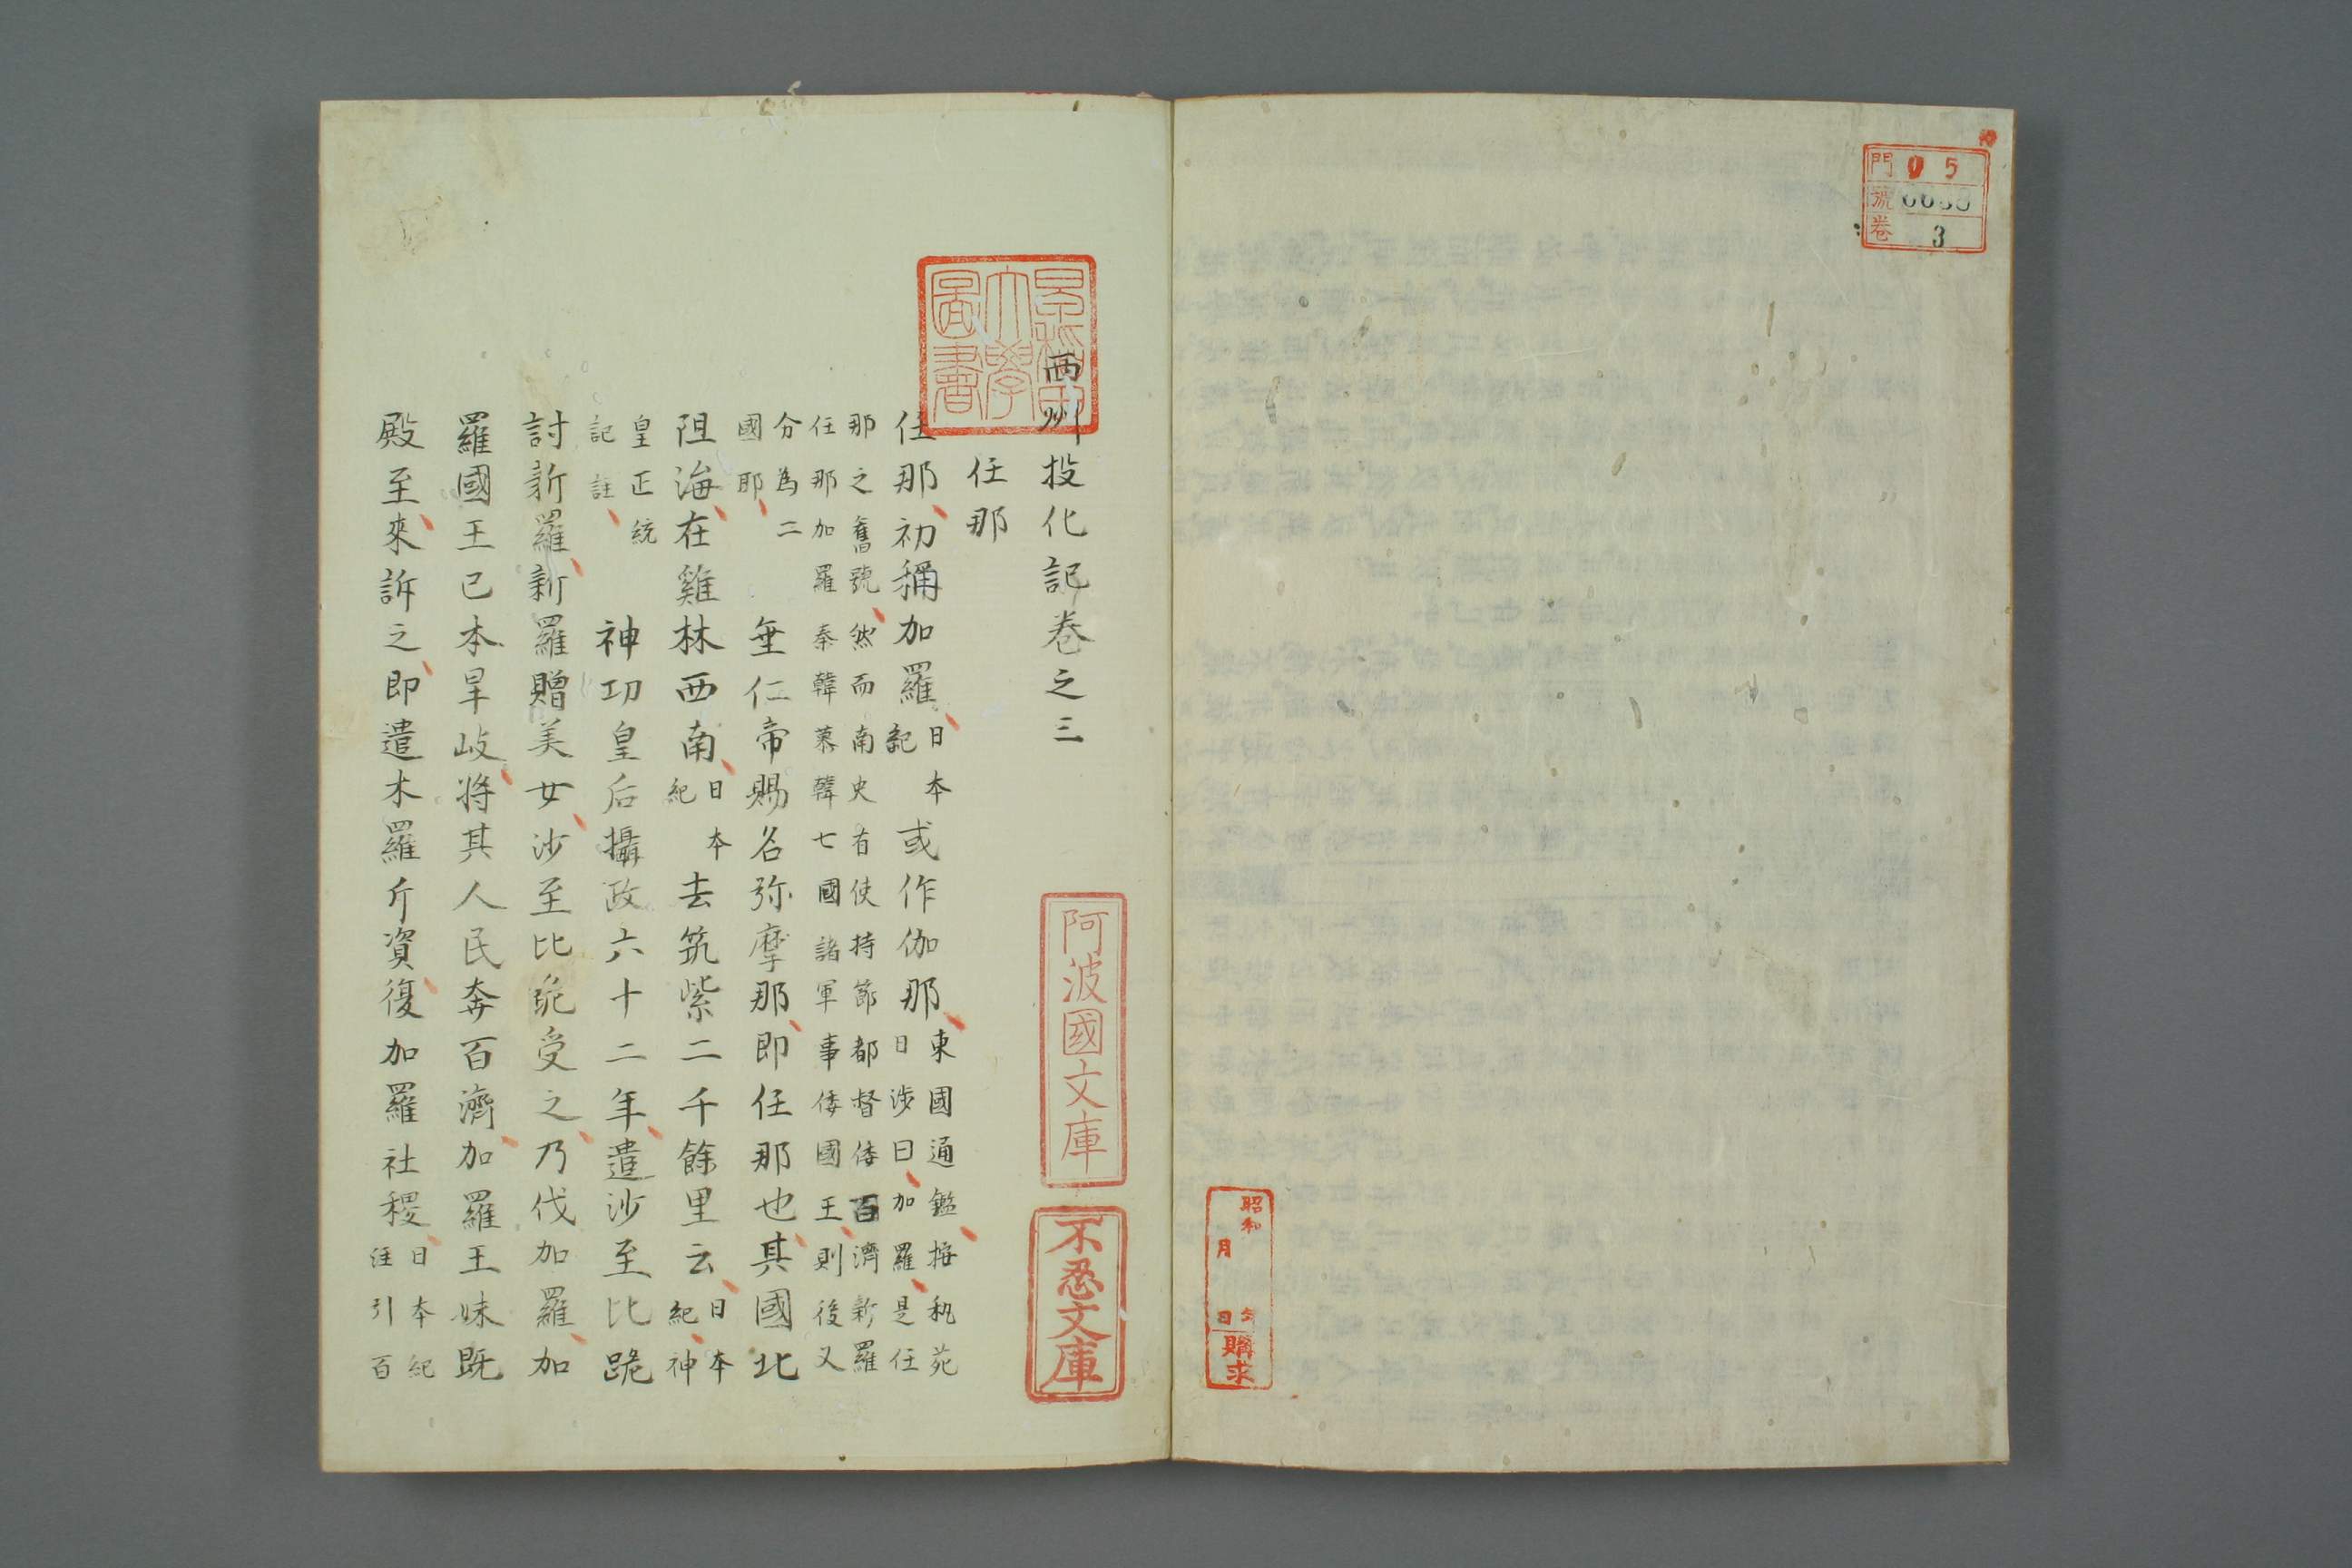 門 05
號
卷 3
昭和 年 月 日 購求
早稲田大學圖書
西州投化記卷之三
阿波國文庫
不忍文庫
任那
任那初稱加羅日本紀或作伽那東國通鑑按秇苑日涉曰加羅是任
那之舊號然而南史有使持節都督倭百濟新羅
任那加羅秦韓慕韓七國諸軍事倭國王則後又
分為二國耶垂仁帝賜名弥摩那即任那也其國北
阻海在雞林西南日本紀去筑紫二千餘里云日本紀神
皇正統記註神功皇后攝政六十二年遣沙至比跪
討新羅新羅贈美女沙至比跪受之乃伐加羅加
羅國王己本旱岐將其人民奔百濟加羅王妹既
殿至來訴之即遣木羅斤資復加羅社稷日本紀注引百